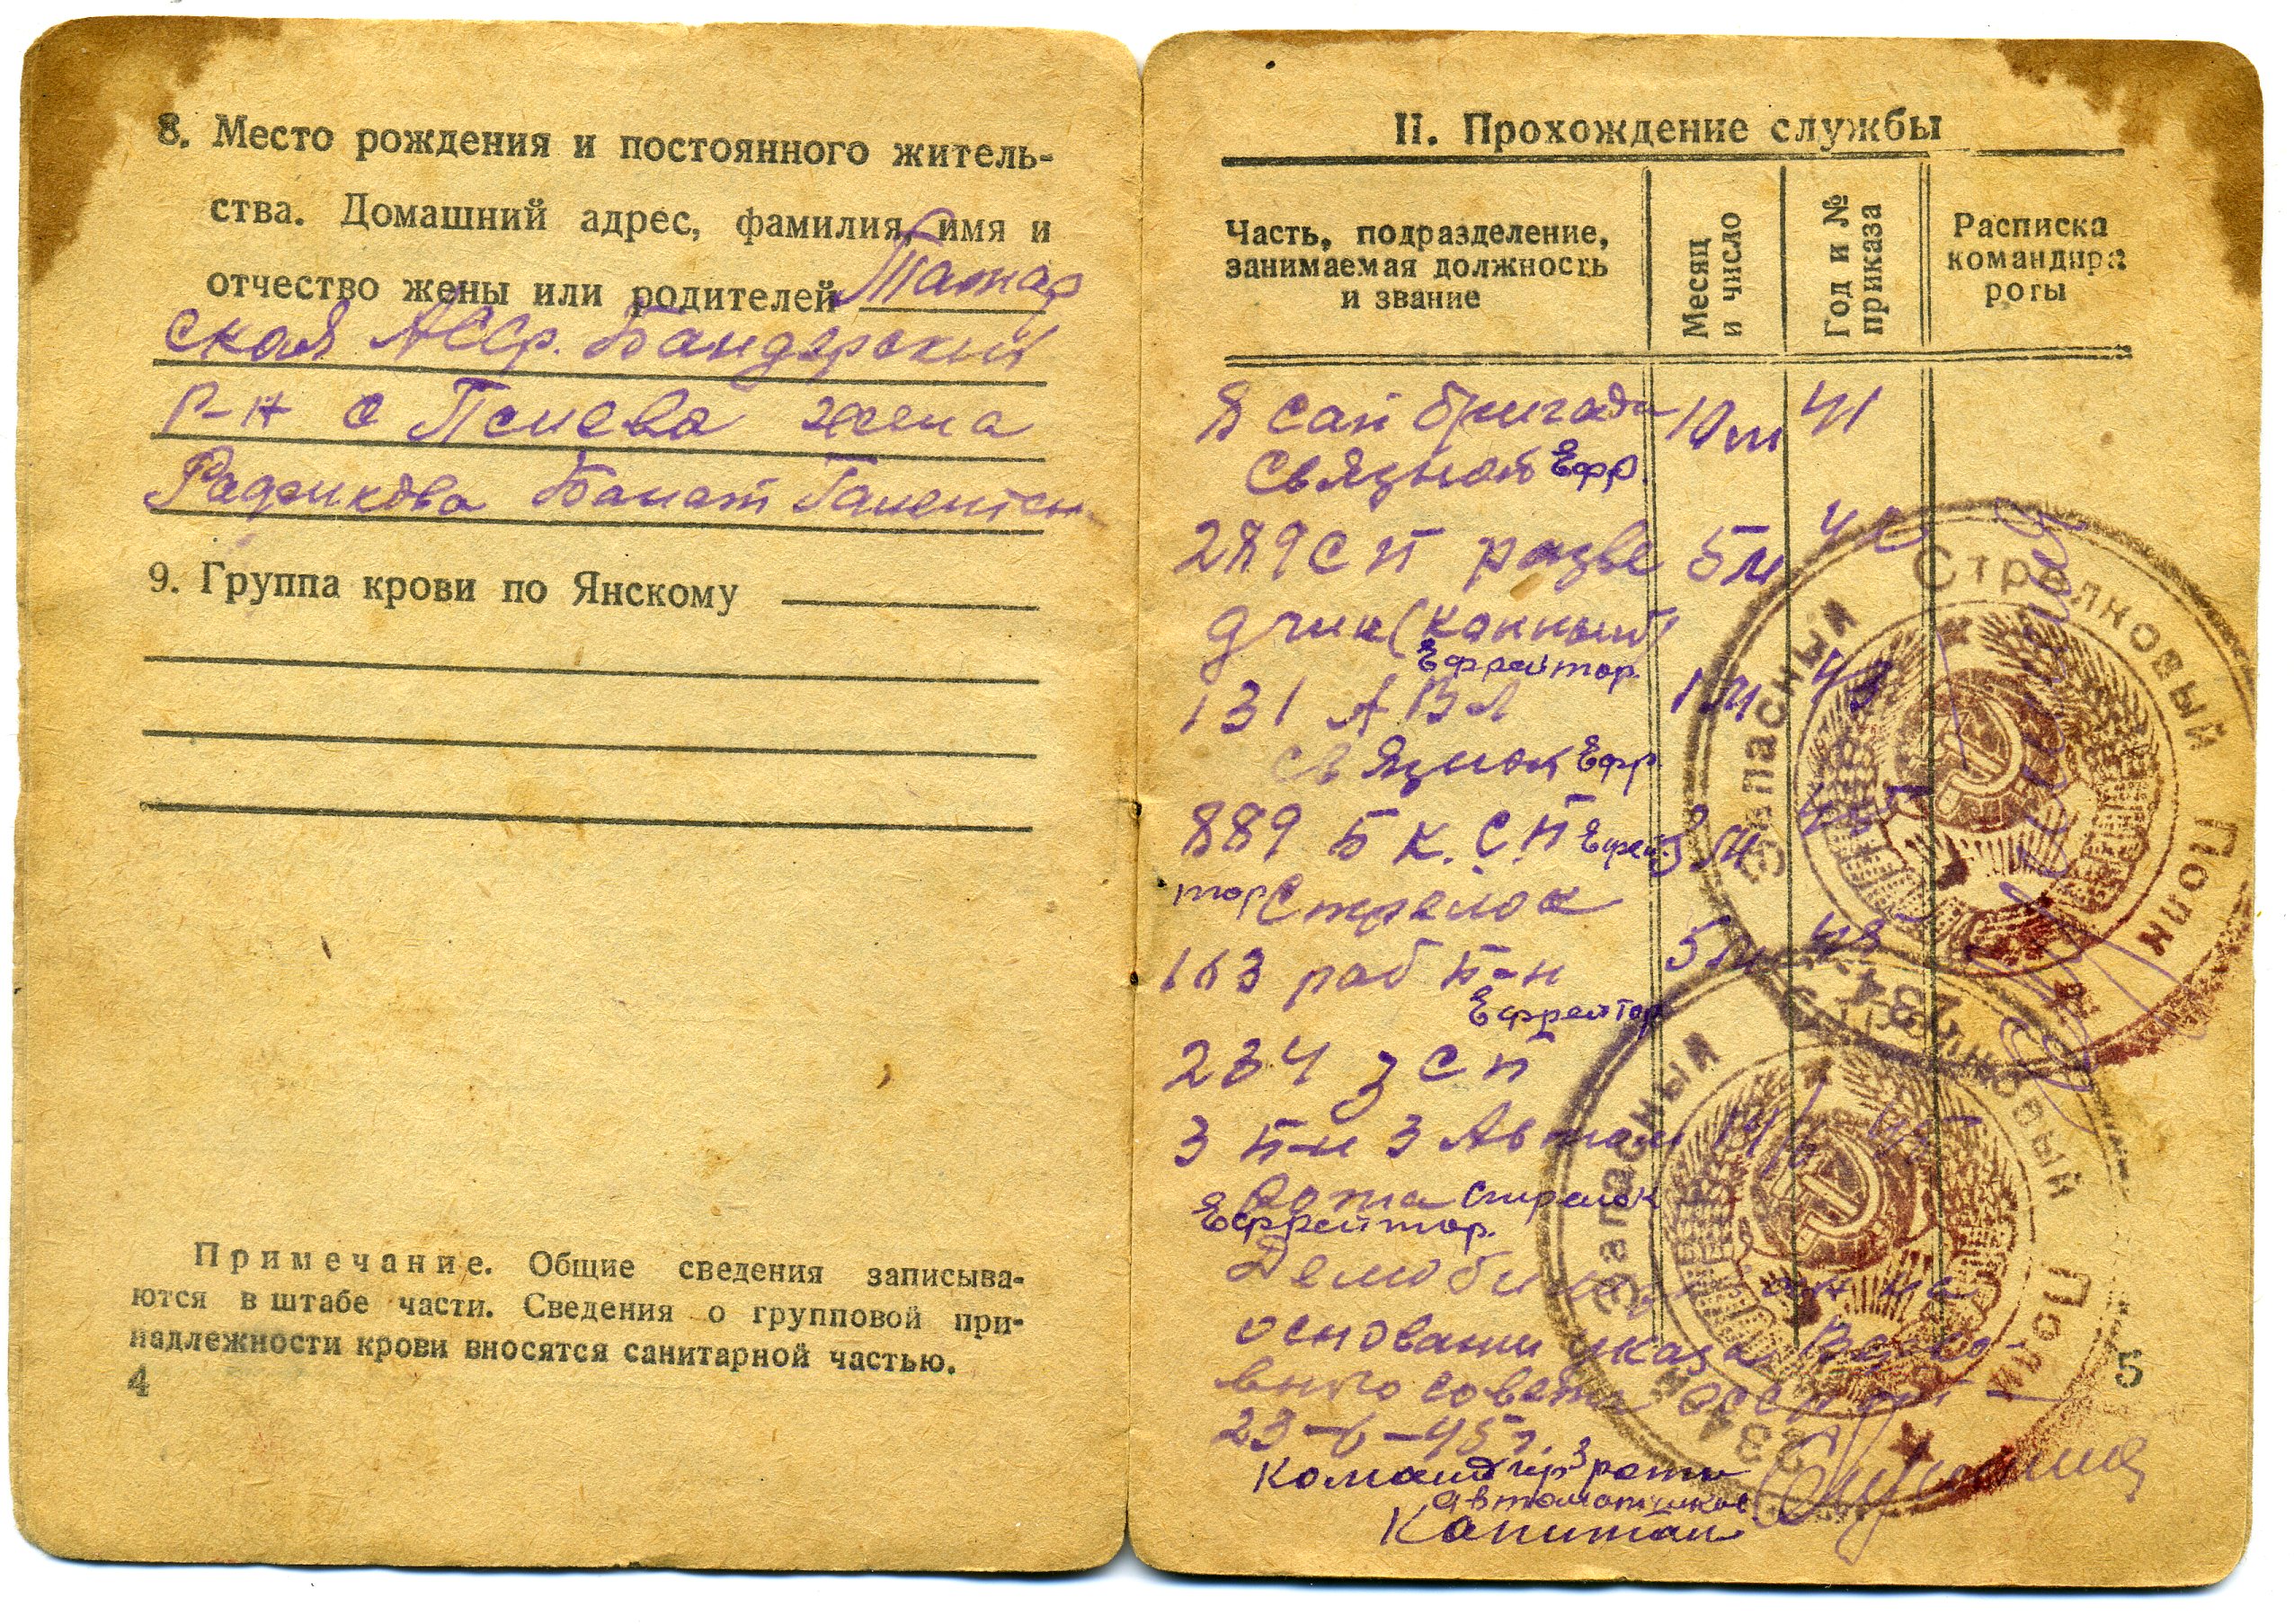 8. Место рождения и постоянного житель-
ства. Домашний адрес, фамилия, имя и
отчество жены или родителей Татар
ская АССР. Бондюжский
р-н с жена
9. Группа крови по Янскому
Примечание. Общие сведения записыва-
ются в штабе части. Сведения о групповой при-
надлежности крови вносятся санитарной частью.
4
II. Прохождение службы
Часть, подразделение,
занимаемая должность
и звание
Месяц
и число
Год и №
приказа
Расписка
командира
роты
сап бригада 10 м 41
связной Ефр.
289 СП разве 5 м
дчик (конный)
Ефрейтор.
131 1 м 43
связной Ефр
889 Б К. С. П Ефрей- 3 м
тор Стрелок
163 раб б-н 5 м 43
Ефрейтор
234 з С П
3 б-н 3 Автом 14/6 45
Рота стрелок
Ефрейтор.
Демобилизован на
основании указа Верхо-
вного совета СССР от
23-6-45 г.
Командир 3 роты
автоматчиков
Капитан
Запасный Стрелковый Полк
234
Запасный Стрелковый Полк
234
5